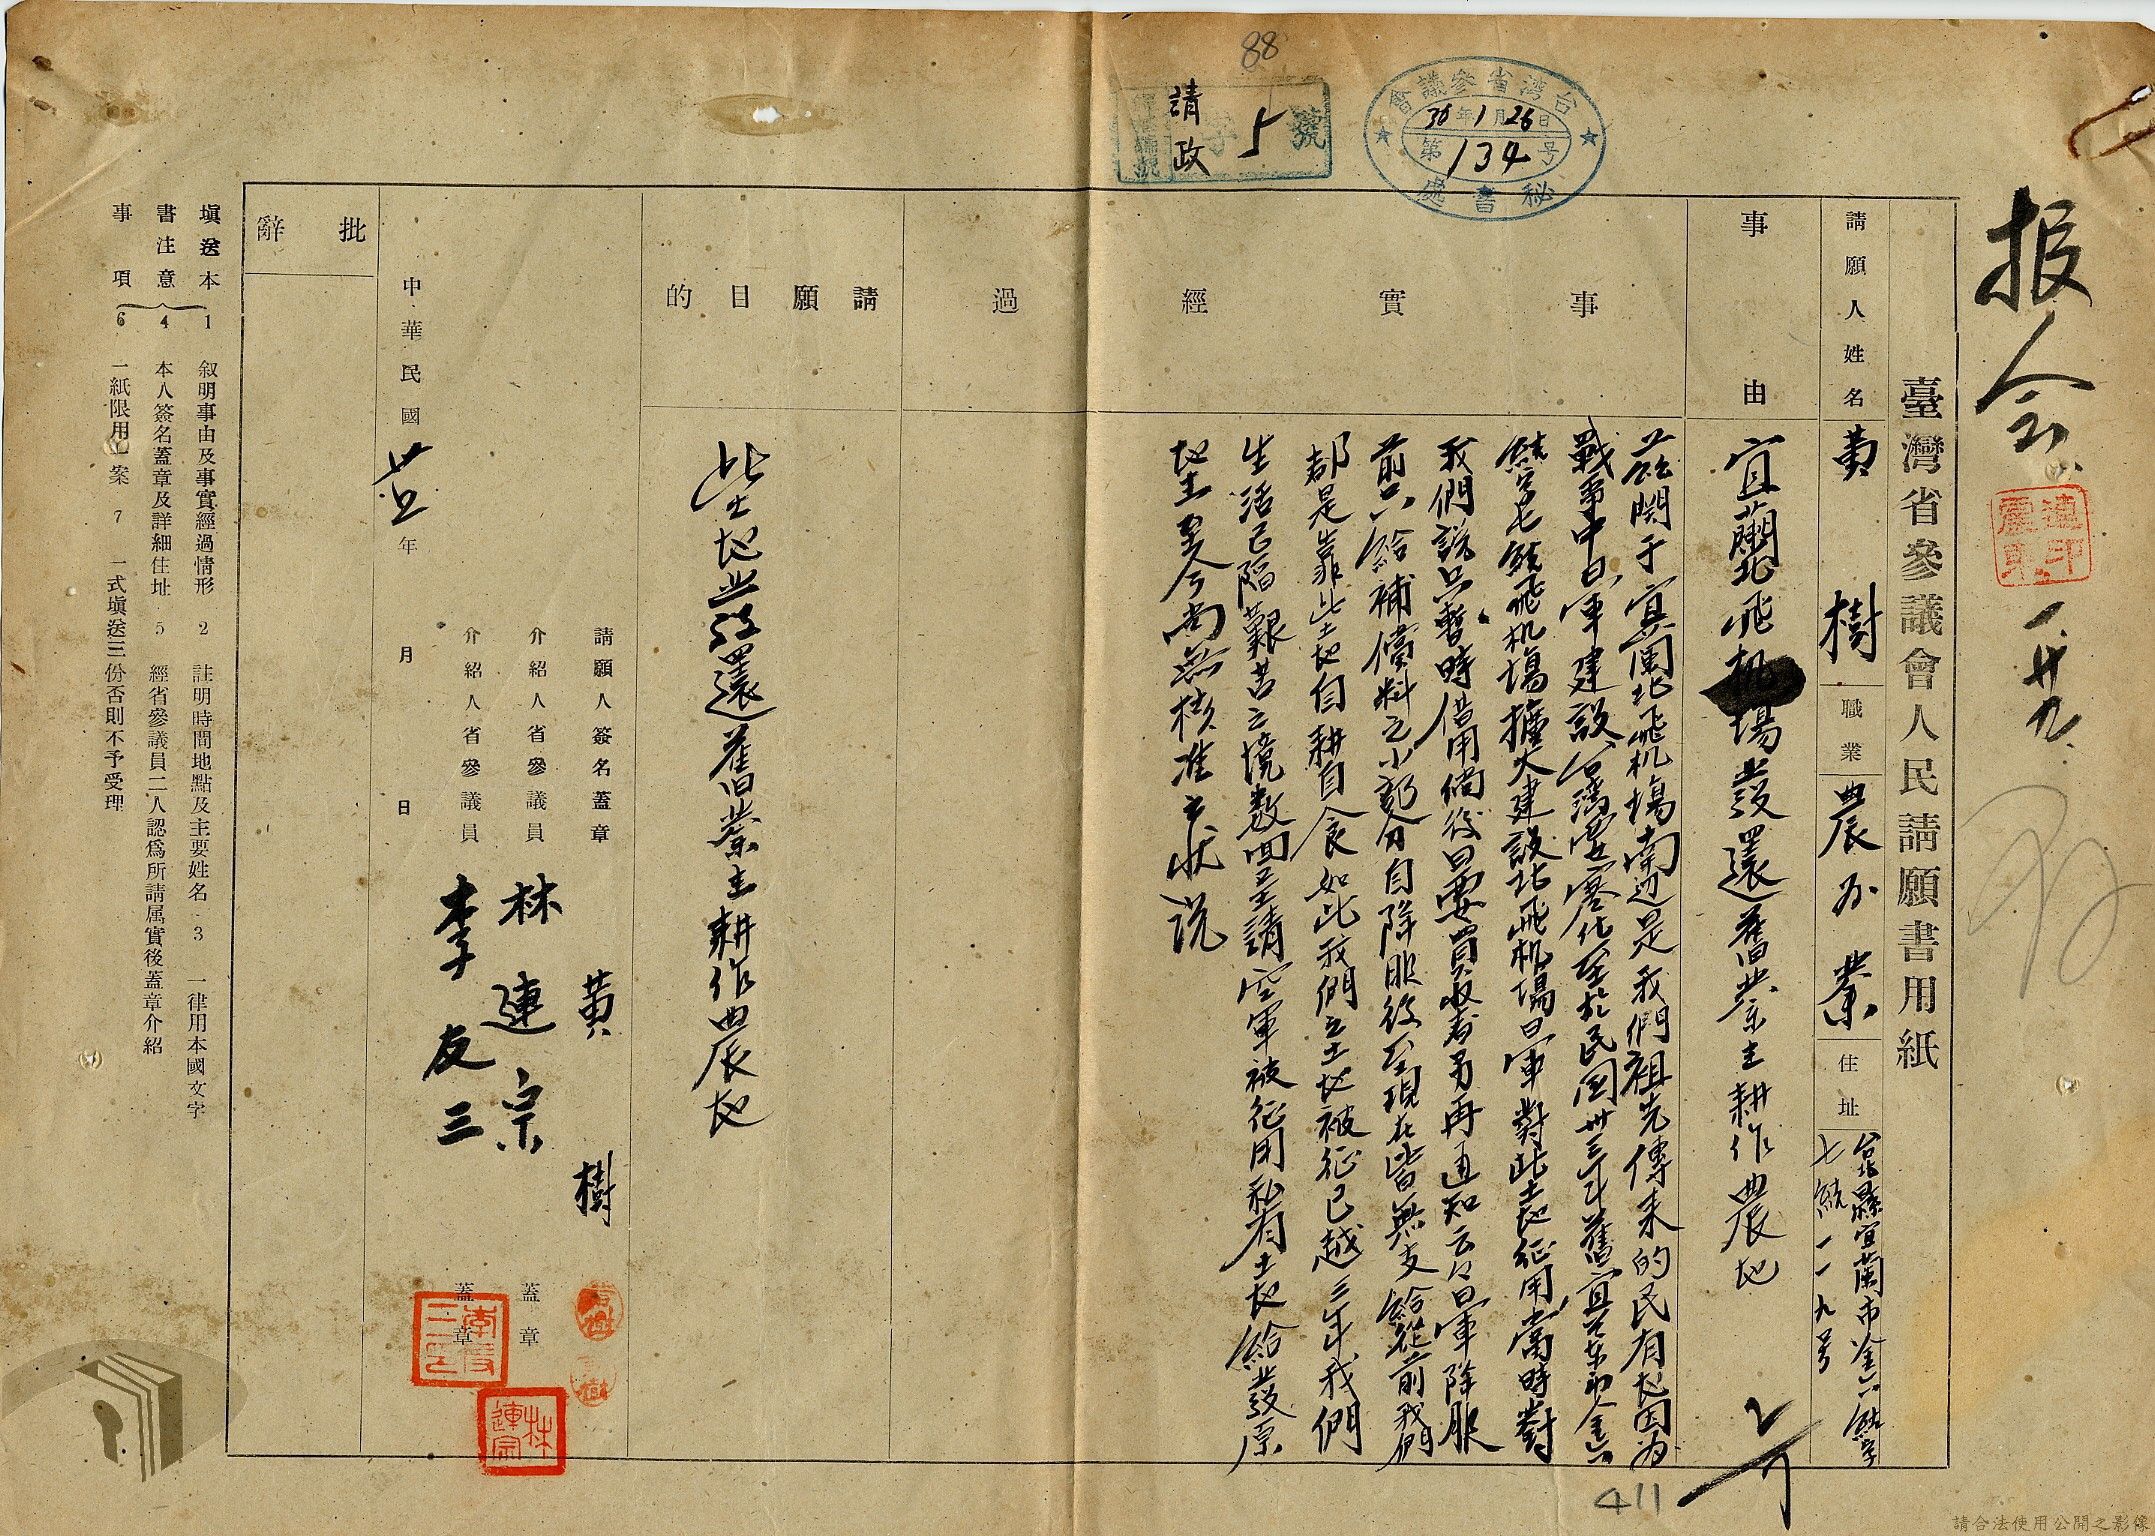 88
請政 字 5 號
台湾省參議會
36年1月26日
第134号
秘書處
报会
一、廿九、
臺灣省參議會人民請願書用紙
請願人姓名 黄樹 職業 農業 住址 台北縣宜蘭市金六結字
七結一一九号
事由 宜蘭北飛机場發還舊業主耕作農地
事實經過
茲関于宜蘭北飛机場南边是我們祖先傳来的民有地因为
戰事中日軍建設台湾要塞化至於民国卅三年舊宜蘭市金六
結字七結飛机場擴大建設北飛机場日軍對此土地征用當時對
我們説只暫時借用倘後日要買收者另再通知云々日軍降服
前只給補償料之小部分自降服後至現在皆無支給從前我們
都是靠此土地自耕自食如此我們之土地被征已越三年我們
生活已陷艱苦之境数回呈請空軍被征用私有土地給發原
地主至今尚無核准之状况
請願目的
此土地發還舊業主耕作農地
請願人簽名蓋章 黄樹
介紹人省參議員 林連宗 蓋章
介紹人省參議員 李友三 蓋章
中華民國 卅五 年 月 日
批辭
填送本書注意事項
1 叙明事由及事實經過情形 2 註明時間地點及主要姓名 3 一律用本國文字
4 本人簽名蓋章及詳細住址 5 經省參議員二人認爲所請属實後蓋章介紹
6 一紙限用一案 7 一式填送三份否則不予受理
李友三印
林連宗
411
請合法使用公開之影像